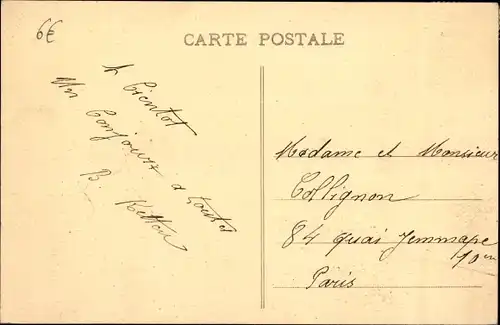 6€
CARTE POSTALE
A bientôt
Un bonjour a toutes
B.
Madame et Monsieur
Collignon
84 quai Jemmape
10em
Paris